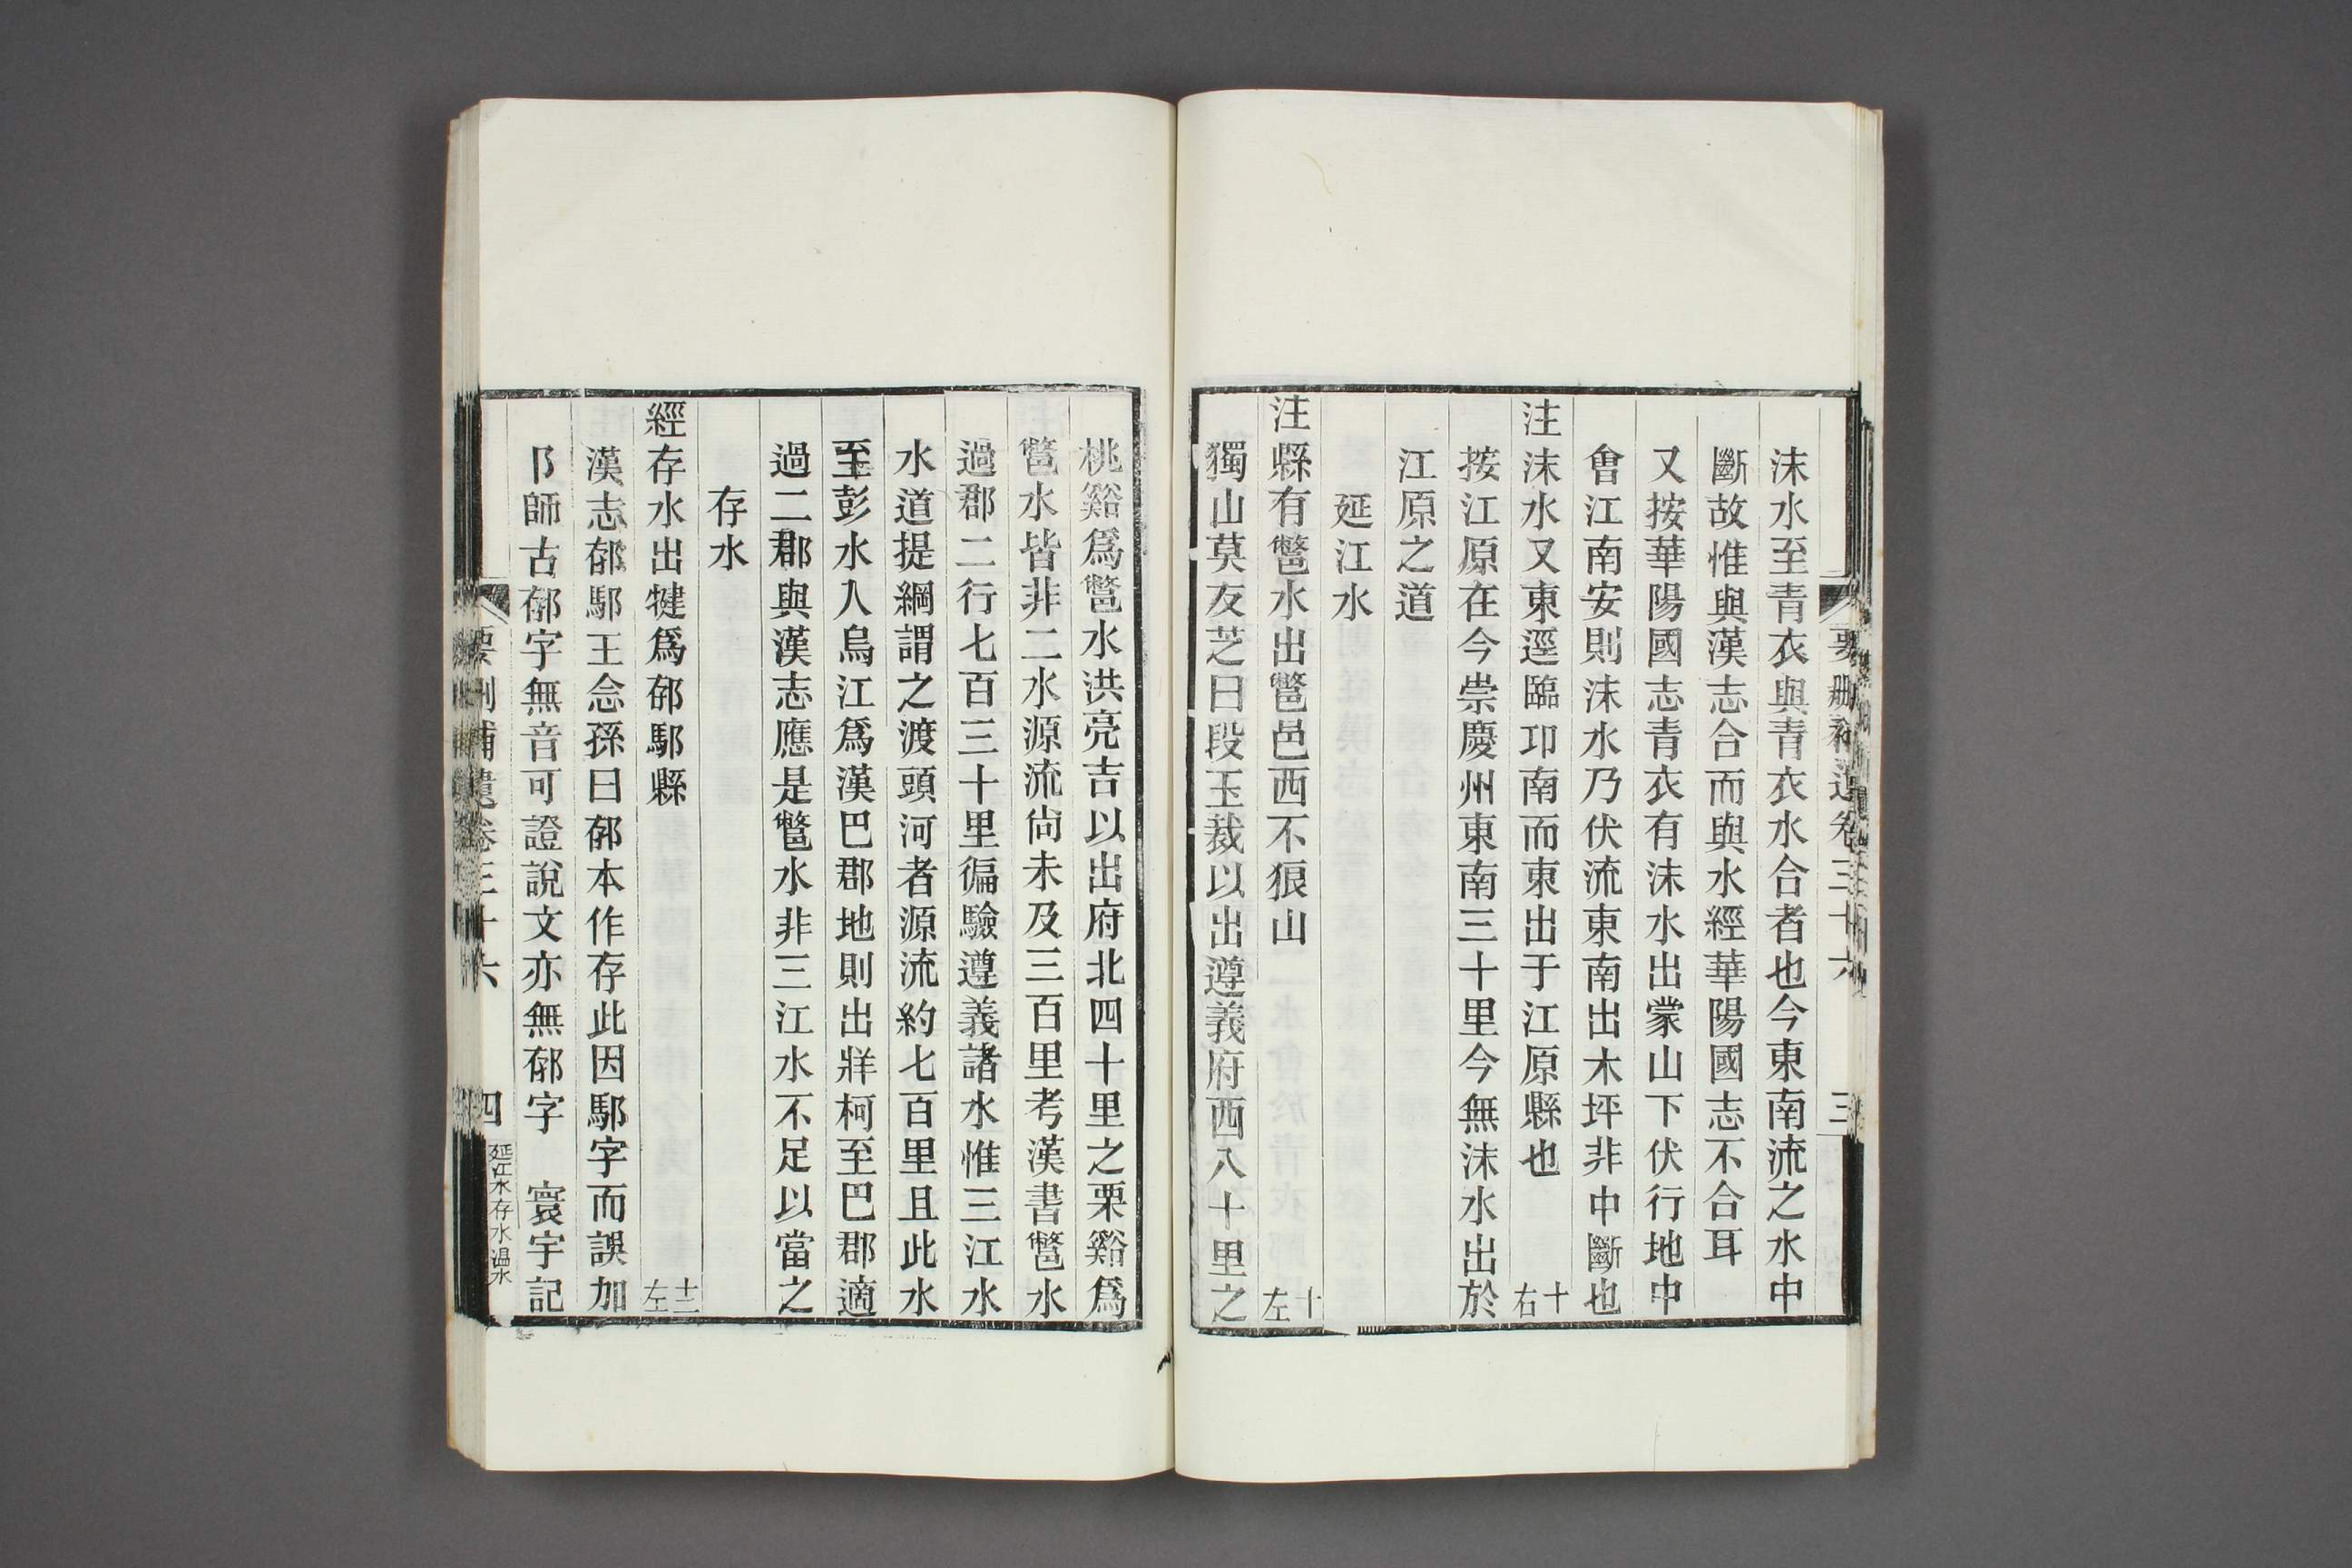 沫水至青衣與青衣水合者也今東南流之水中
斷故惟與漢志合而與水經華陽國志不合耳
又按華陽國志青衣有沫水出蒙山下伏行地中
會江南安則沫水乃伏流東南出木坪非中斷也
注沫水又東逕臨卭南而東出于江原縣也 十右
按江原在今崇慶州東南三十里今無沫水出於
江原之道
延江水
注縣有鷩水出鷩邑西不狼山 十左
獨山莫友芝曰段玉裁以出遵義府西八十里之
桃谿爲鷩水洪亮吉以出府北四十里之栗谿爲
鷩水皆非二水源流尙未及三百里考漢書鷩水
過郡二行七百三十里徧驗遵義諸水惟三江水
水道提綱謂之渡頭河者源流約七百里且此水
至彭水入烏江爲漢巴郡地則出牂柯至巴郡適
過二郡與漢志應是鷩水非三江水不足以當之
存水
經存水出犍爲郁鄢縣 十二左
漢志郁鄢王念孫曰郁本作存此因鄢字而誤加
阝師古郁字無音可證說文亦無郁字 寰宇記
要刪補遺卷三十六
四
延江水存水溫水